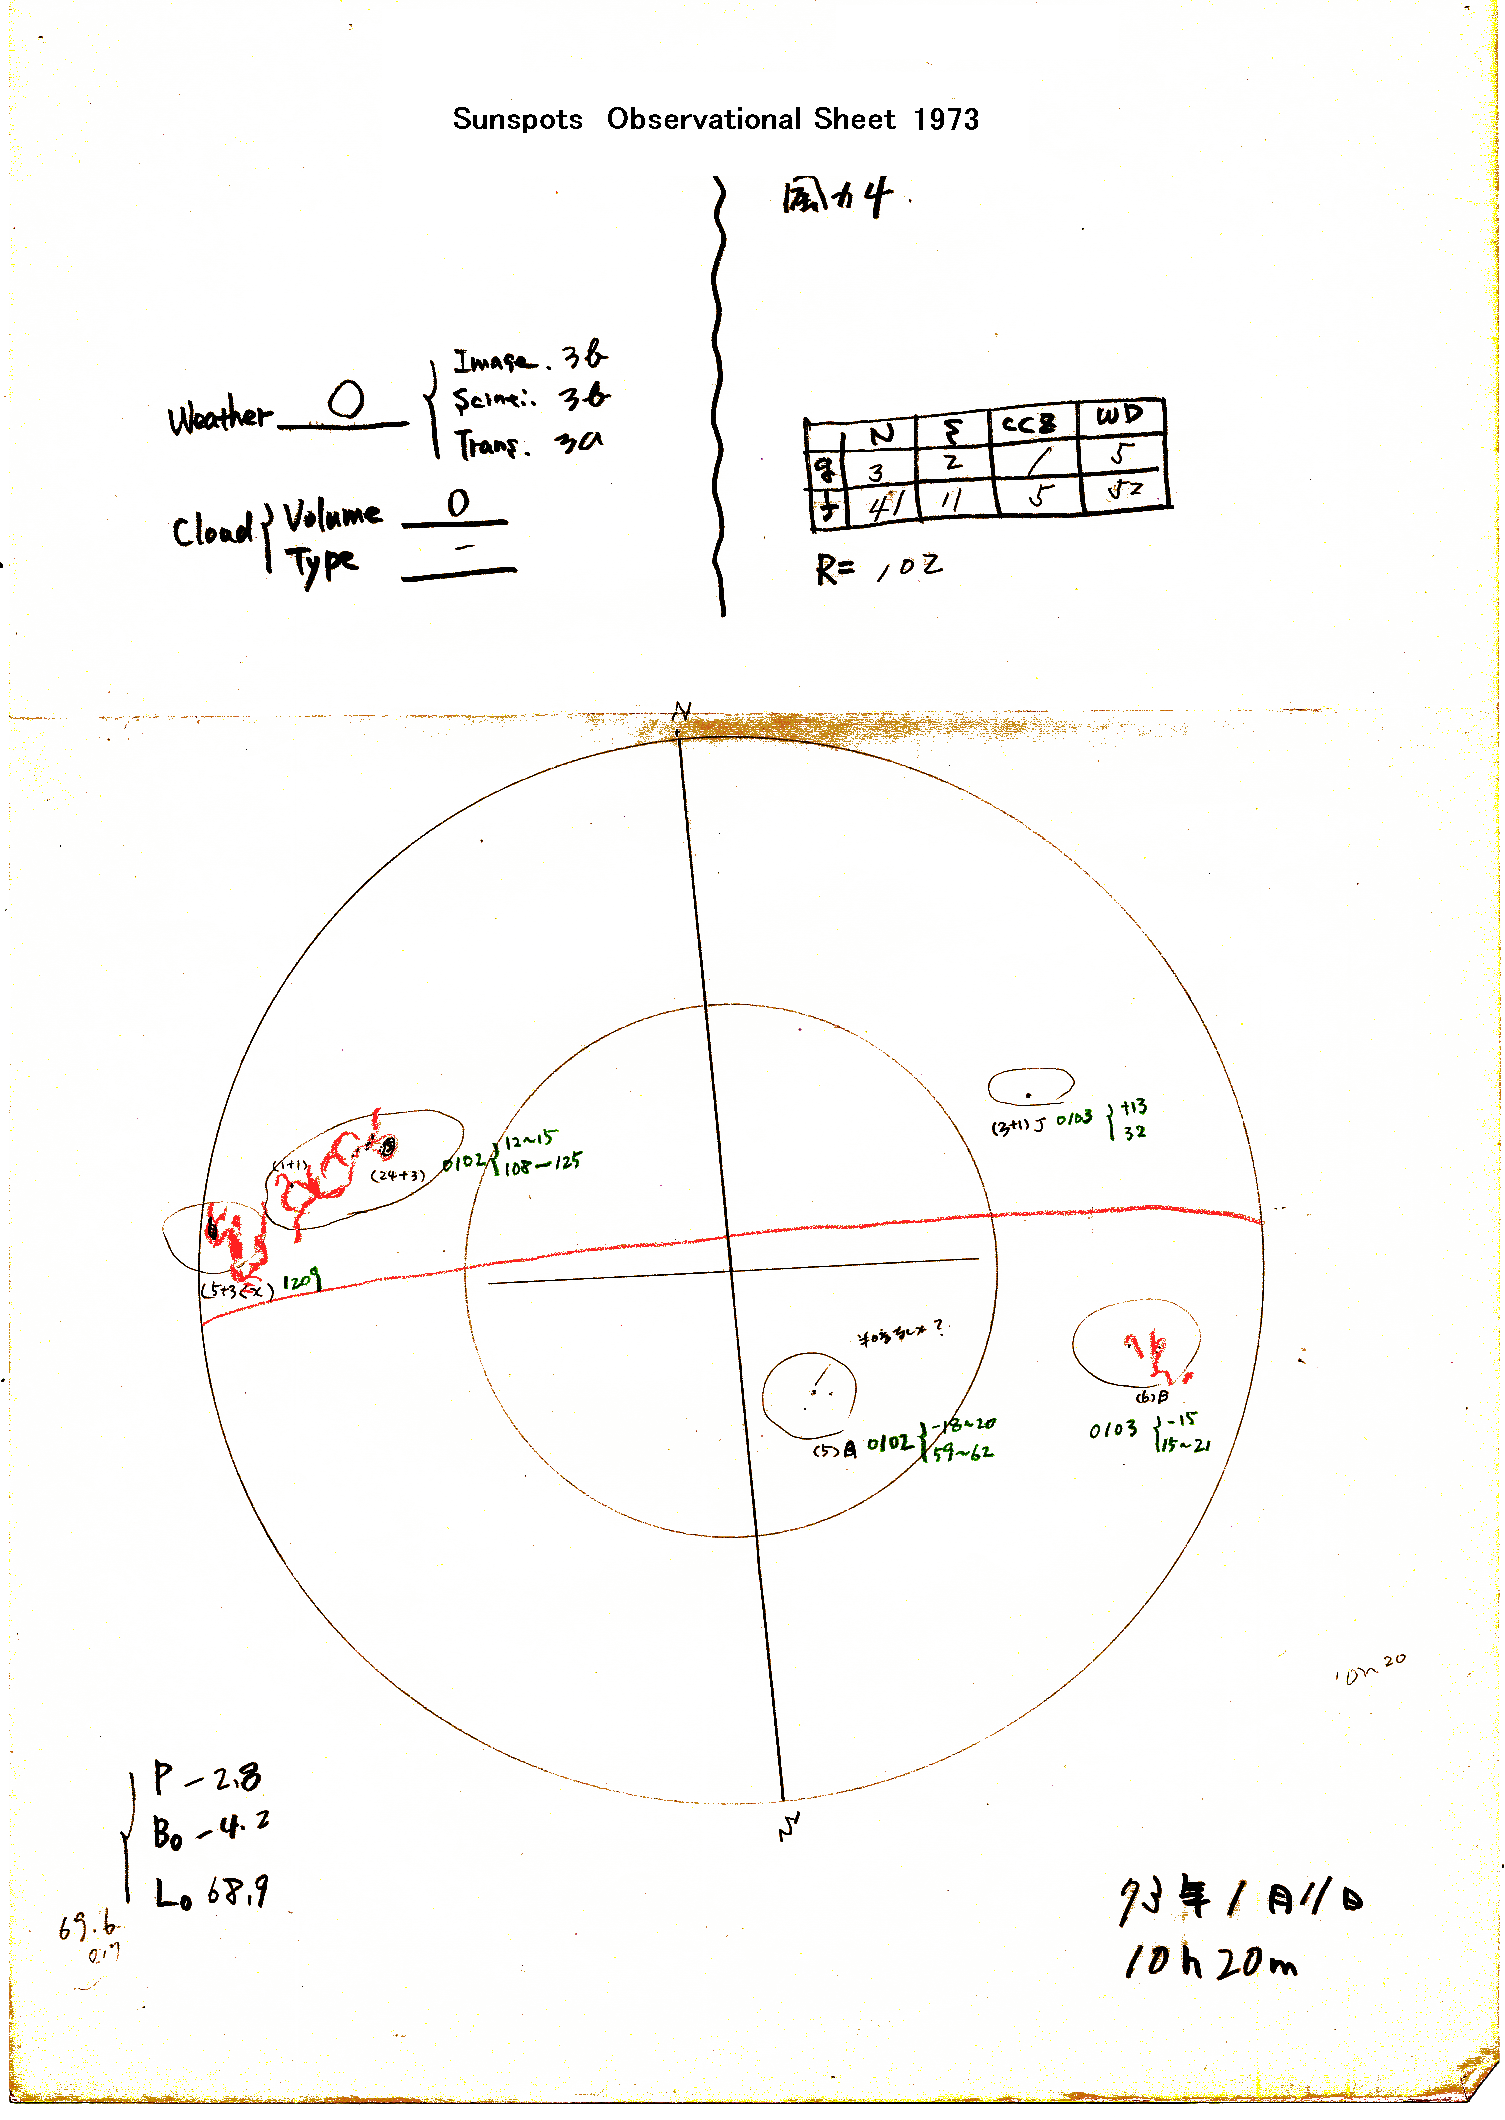 Sunspots Observational Sheet 1973
風力4.
Weather O
Image. 3b
Scinti. 3b
Trans. 3a
Cloud Volume 0
Type -
N S CCZ WD
g 3 2 1 5
f 41 11 5 52
R= 102
N
(1+1)
(24+3) 0102 12~15
108-125
(3+1) J 0103 +13
32
1209
(5) B 0102 -18~20
59~62
(6) B
0103 -15
15~21
10h20
P -2.8
B0 -4.2
L0 68.9
69.6
0.7
73年1月11日
10h20m